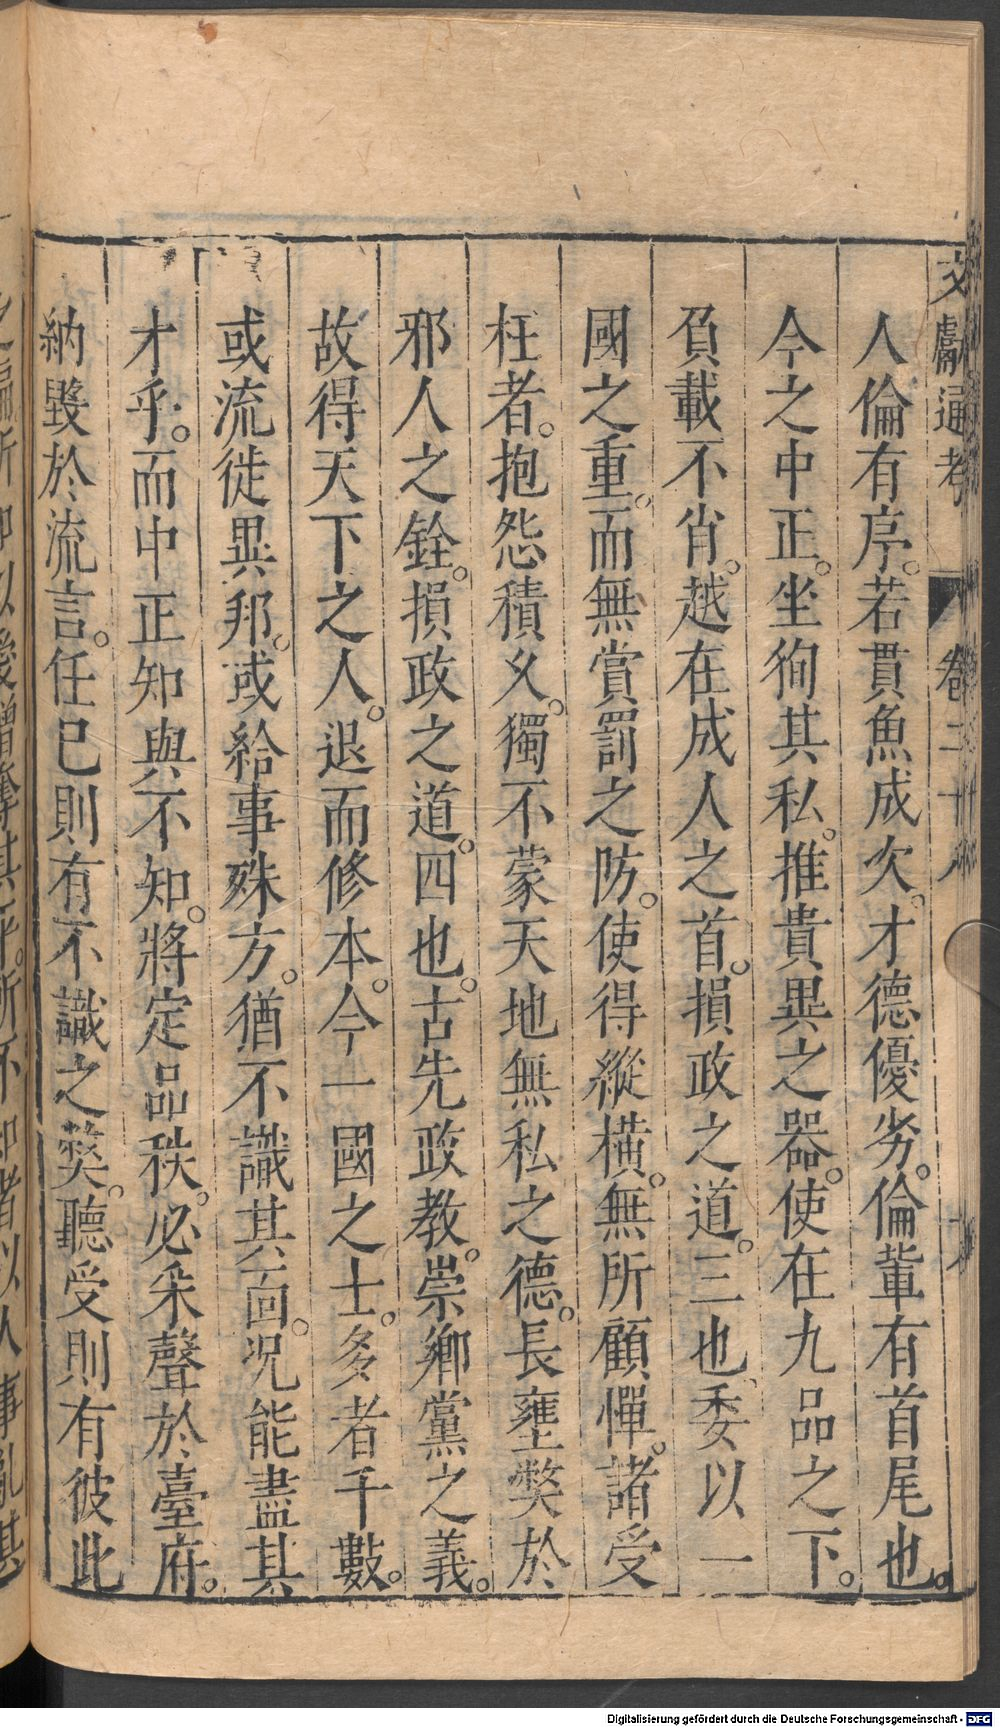 文獻通考 卷二十八
人倫有序。若貫魚成次。才德優劣。倫軰有首尾也。
今之中正。坐徇其私。推貴異之器。使在九品之下。
負載不肖。越在成人之首。損政之道。三也、委以一
國之重。而無賞罰之防。使得縱橫。無所顧憚。諸受
枉者。抱怨積乆。獨不蒙天地無私之德。長壅獘於
邪人之銓。損政之道。四也。古先政教。崇鄉黨之義。
故得天下之人。退而修本。今一國之士。多者千數。
或流徙異邦。或給事殊方。猶不識其靣。况能盡其
才乎。而中正知與不知。將定品秩。必采聲於臺府。
納毀於流言。任已則有不識之獘。聽受則有彼此
Digitalisierung gefördert durch die Deutsche Forschungsgemeinschaft - DFG